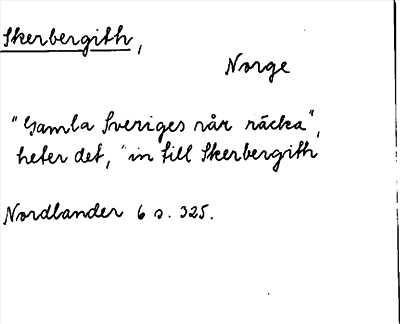 Skerbergith,
Norge
"Gamla Sveriges rår räcka",
heter det, "in till Skerbergith
Nordlander 6 s. 325.